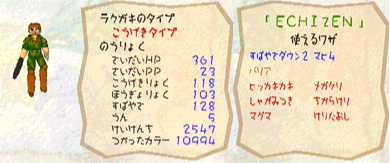 ラクガキのタイプ
こうげきタイプ
のうりょく
ていだいHP 361
ていだいPP 23
こうげきりょく 118
ぼうぎょりょく 103
すばやさ 128
うん 5
けいけんち 2547
つかったカラー 10994
「ECHIZEN」
使えるワザ
すばやさダウン2 マヒ4
バリア
ヒッカキカキ メガクリ
しゃがみつき ちからけり
マグマ けりたおし